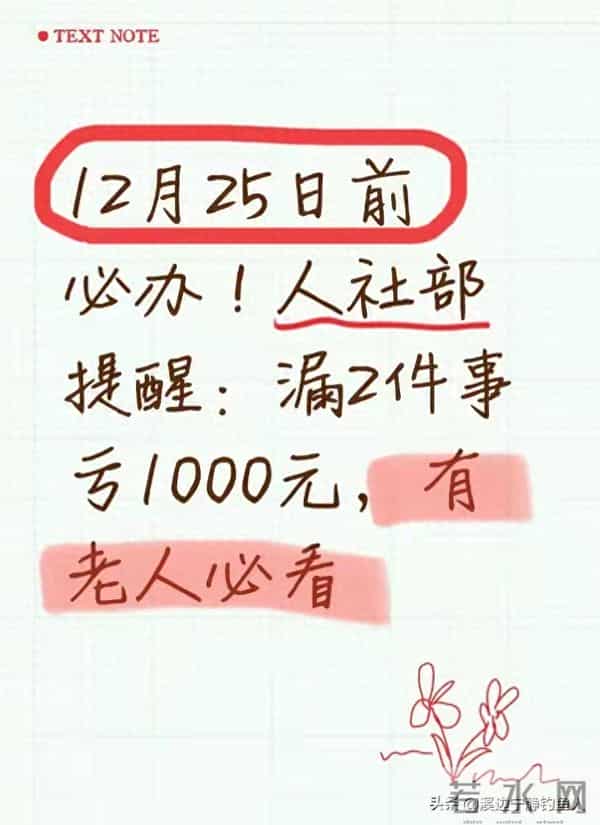 TEXT NOTE
12月25日前
必办！人社部
提醒：漏2件事
亏1000元，有
老人必看
若水网